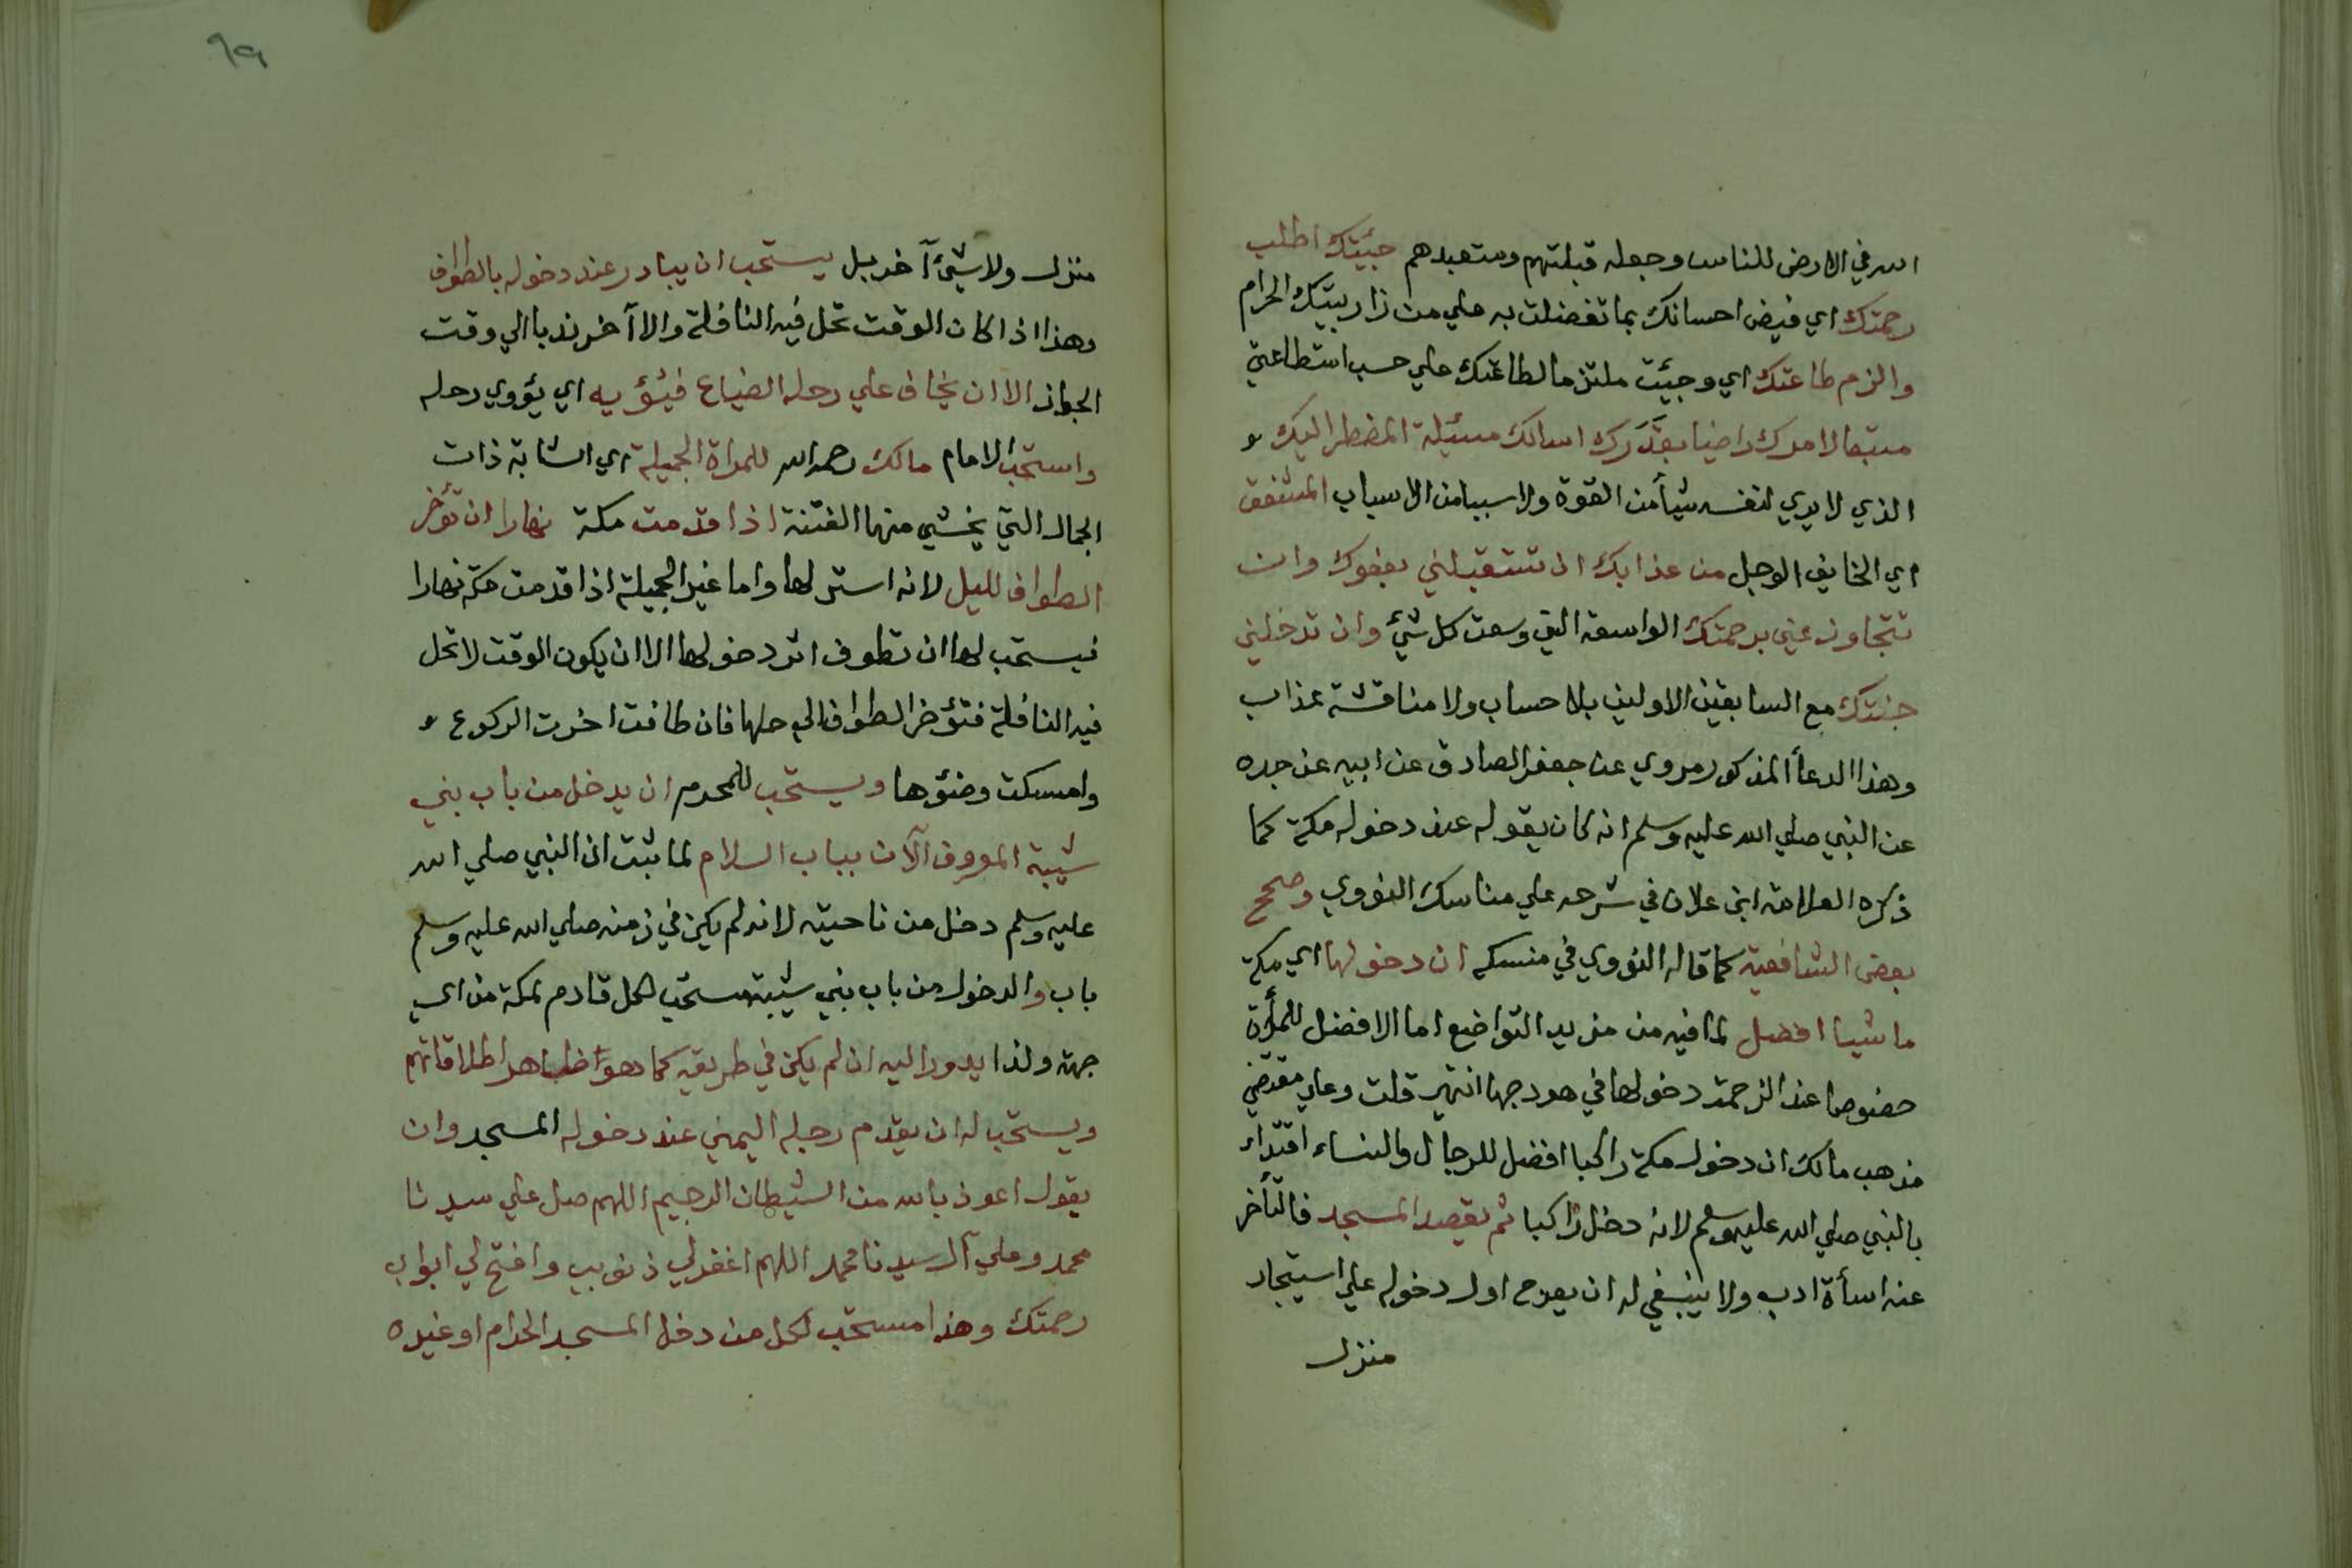 الله في الارض للناس وجعله قبلتهم ومتعبدهم جيئتك اطلب
رحمتك اي فيض احسانك بما تفضلت به علي من زار بيتك الحرام
والزم طاعتك اي وجيئت ملتزما لطاعتك علي حسب استطاعتي
متبعا لامرك راضيا بقدرك اسالك مسئلة المضطر اليك
الذي لا يري لنفسه شيأ من القوة ولا سببا من الاسباب المشفق
اي الخايف الوجل من عذابك ان تستقبلني بعفوك وان
تتجاوز عني برحمتك الواسعة التي وسعت كل شئ وان تدخلني
جنتك مع السابقين الاولين بلا حساب ولا مناقشة عذاب
وهذا الدعأ المذكور مروي عن جعفر الصادق عن ابيه عن جده
عن النبي صلي الله عليه وسلم انه كان يقوله عند دخوله مكة كما
ذكره العلامة ابن علان في شرحه علي مناسك النووي وصحح
بعض الشافعية كما قاله النووي في منسكه ان دخولها اي مكة
ماشيا افضل لما فيه من مزيد التواضع اما الافضل للمرأة
خصوصا عند الزحمة دخولها في هودجها انتهي قلت وعلي مقتضي
مذهب مالك ان دخول مكة راكبا افضل للرجال والنساء اقتداء
بالنبي صلي الله عليه وسلم لانه دخل راكبا ثم يقصد المسجد فالتأخر
عنه اسأة ادب ولا ينبغي له ان يعرج اول دخوله علي استيجار
منزل
٦٩
منزل ولا شئ آخر بل يستحب ان يبادر عند دخوله بالطواف
وهذا اذا كان الوقت تحل فيه النافلة والا آخر ندبا الي وقت
الجواز الا ان يخاف علي رحله الضياع فيئويه اي يؤوي رحله
واستحب الامام مالك رحمه الله للمراة الجميلة اي الشابة ذات
الجمال التي يخشي منها الفتنة اذا قدمت مكة نهارا ان تؤخر
الطواف لليل لانه استر لها واما غير الجميلة اذا قدمت مكة نهارا
فيستحب لها ان تطوف اثر دخولها الا ان يكون الوقت لا تحل
فيه النافلة فتؤخر الطواف الي حلها فان طافت اخرت الركوع
وامسكت وضئوها ويستحب للمحرم ان يدخل من باب بني
شيبة المعروف الآن بباب السلام لما ثبت ان النبي صلي الله
عليه وسلم دخل من ناحيته لانه لم يكن في زمنه صلي الله عليه وسلم
باب والدخول من باب بني شيبة مستحب لكل قادم لمكة من اي
جهة ولذا يدور اليه ان لم يكن في طريقه كما هو ظاهر اطلاقاتهم
ويستحب له ان يقدم رجله اليمني عند دخوله المسجد وان
يقول اعوذ بالله من الشيطان الرجيم اللهم صل علي سيدنا
محمد وعلي آل سيدنا محمد اللهم اغفر لي ذنوبي وافتح لي ابواب
رحمتك وهذا مستحب لكل من دخل المسجد الحرام او غيره